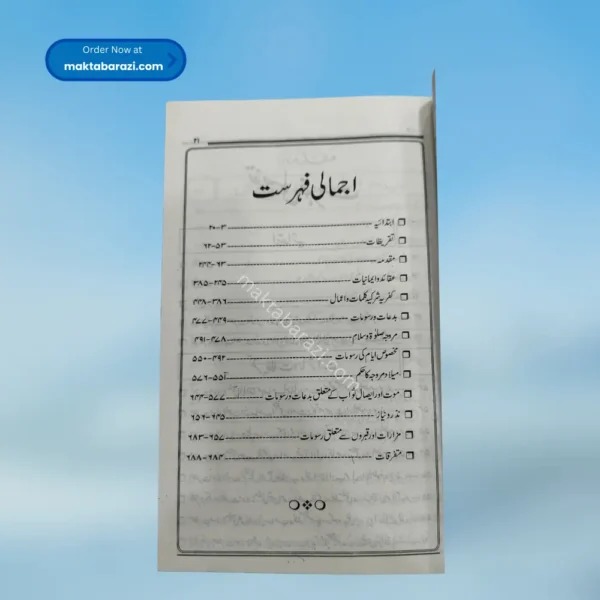 Order Now at
maktabarazi.com
۲۱
اجمالی فہرست
ابتدائیہ ۳-۲۰
تقریظات ۵۳-۶۲
مقدمہ ۶۳-۲۴۴
عقائد و ایمانیات ۲۴۵-۳۸۵
کفریہ شرکیہ کلمات و اعمال ۳۸۶-۴۴۸
بدعات و رسومات ۴۴۹-۴۷۷
مروجہ صلوٰۃ و سلام ۴۷۸-۴۹۱
مخصوص ایام کی رسومات ۴۹۲-۵۵۰
میلاد مروجہ کا حکم ۵۵۱-۵۷۶
موت اور ایصال ثواب کے متعلق بدعات و رسومات ۵۷۷-۶۴۴
نذر و نیاز ۶۴۵-۶۵۶
مزارات اور قبروں سے متعلق رسومات ۶۵۷-۶۸۳
متفرقات ۶۸۴-۶۸۸
maktabarazi.com